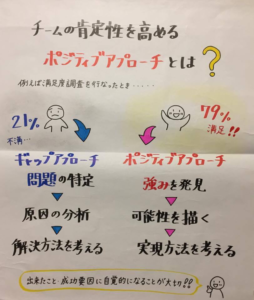 チームの肯定性を高める
ポジティブアプローチとは?
例えば満足度調査を行なったとき・・・・・
21%
不満…
79%
満足!!
ギャップアプローチ
ポジティブアプローチ
問題の特定
強みを発見
原因の分析
可能性を描く
解決方法を考える
実現方法を考える
出来たこと・成功要因に自覚的になることが大切!!